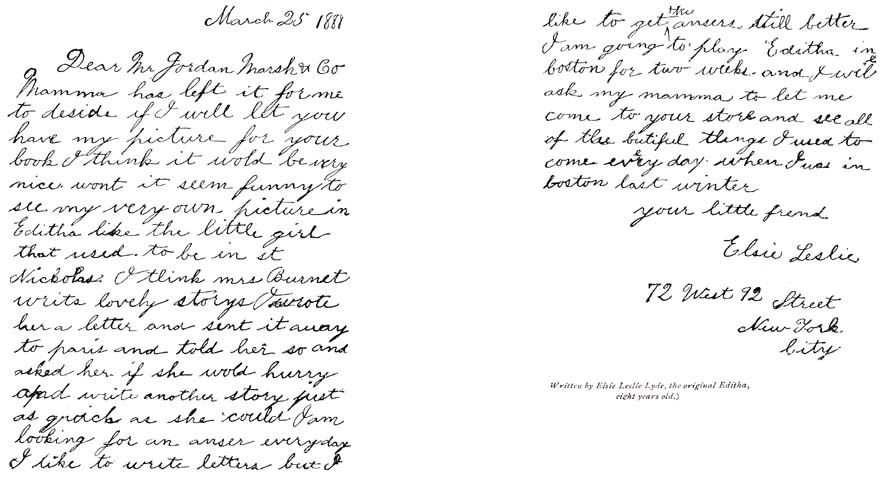 March 25 1888
Dear Mr Jordan Marsh & Co
Mamma has left it for me
to deside if I will let you
have my picture for your
book I think it wold be very
nice. wont it seem funny to
see my very own picture in
Editha like the little girl
that used to be in st
Nickolas. I think mrs Burnet
writs lovely storys I wrote
her a letter and sent it away
to paris and told her so and
asked her if she wold hurry
and write another story just
as quick as she could I am
looking for an anser every day
I like to write letters but I
like to get the ansers still better
I am going to play Editha in
boston for two weeks and I will
ask my mamma to let me
come to your store and see all
of the butiful things I used to
come every day when I was in
boston last winter
your little frend
Elsie Leslie
72 West 92 Street
New York
City
Written by Elsie Leslie Lyde, the original Editha,
eight years old.)